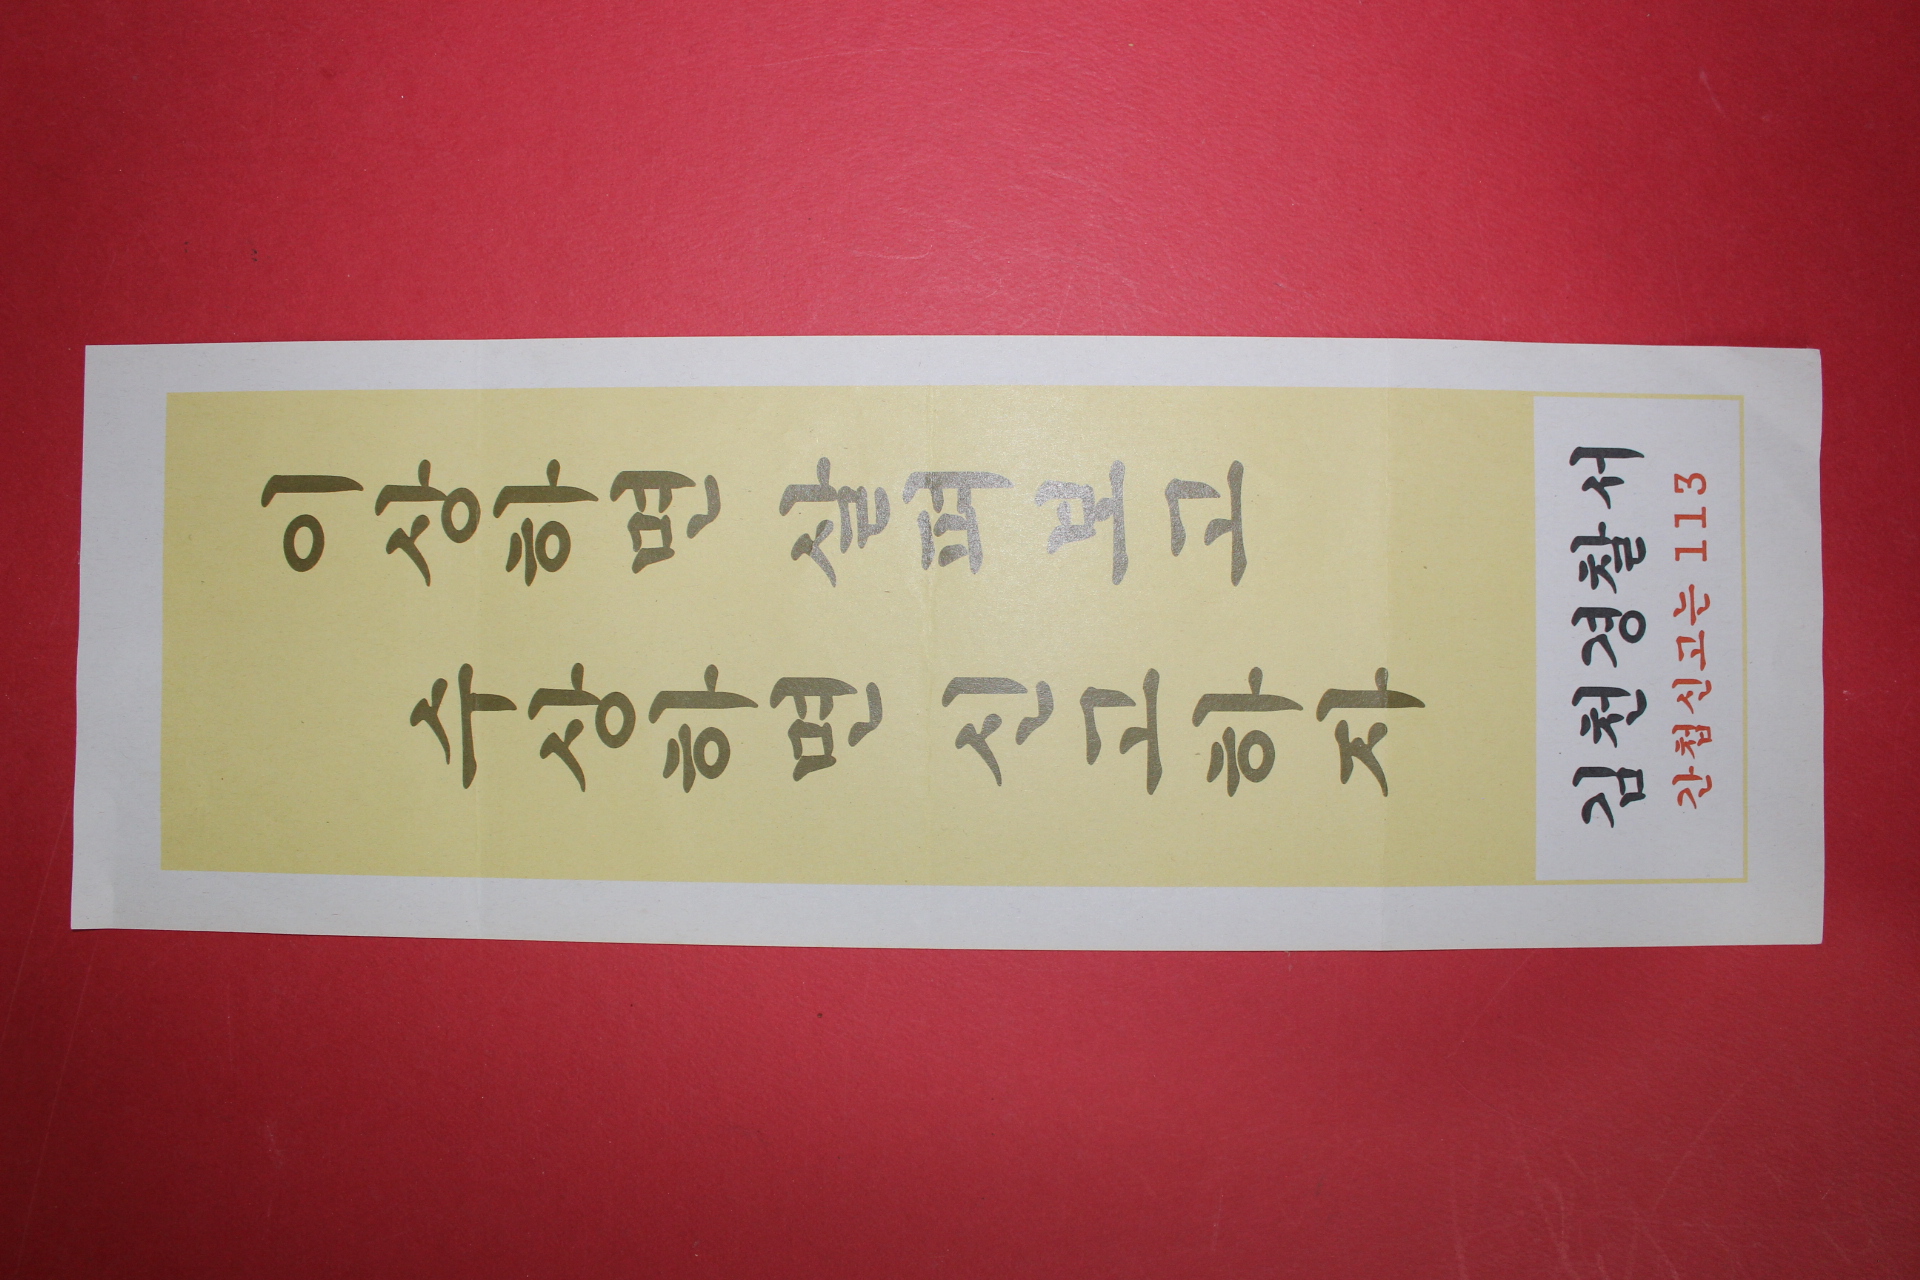 이상하면 살펴보고
수상하면 신고하자
김천경찰서
간첩신고는 113